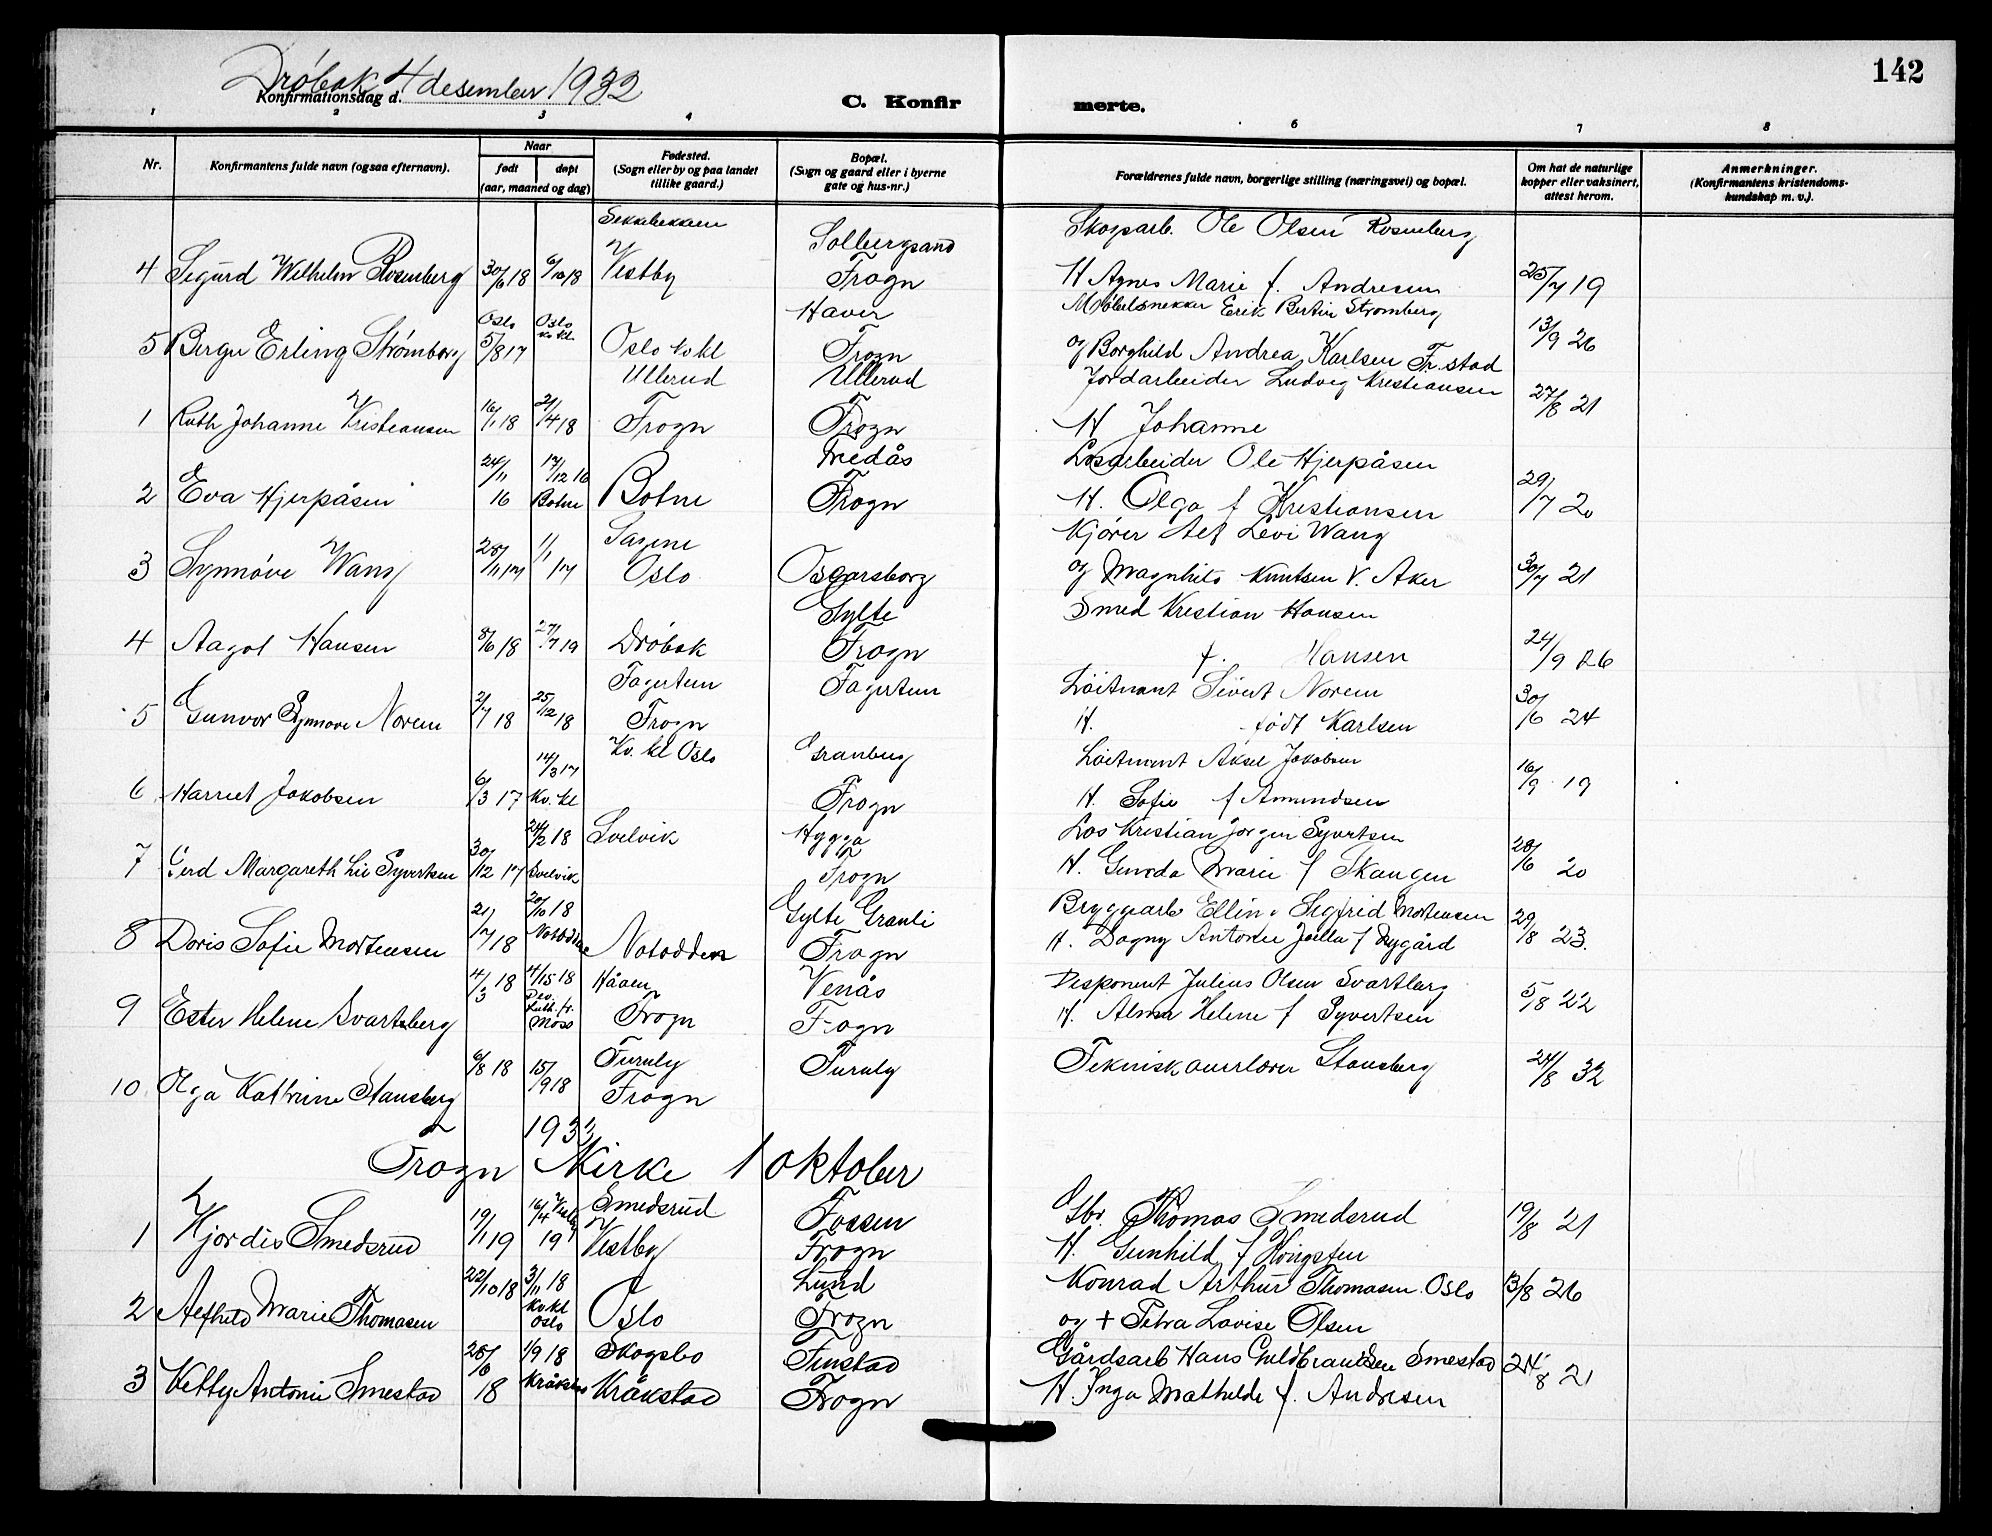 Drøbak 4 desember 1932
142
Konfirmationsdag d.
C. Konfirmerte.
1 2 3 4 6 7 8
Nr. Konfirmantens fulde navn (ogsaa efternavn). Naar født døpt (aar, maaned og dag) Fødested. (Sogn eller by og paa landet tillike gaard.) Bopæl. (Sogn og gaard eller i byerne gate og hus-nr.) Forældrenes fulde navn, borgerlige stilling (næringsvei) og bopæl. Om hat de naturlige kopper eller vaksinert, attest herom. Anmerkninger. (Konfirmantens kristendoms-kundskap m. v.).
Sekkebekken Solbergsand Skogsarb. Ole Olsen Rosenberg
4 Sigurd Wilhelm Rosenberg 30/6 18 6/10 18 Vestby Frogn H Agnes Marie f. Andresen 25/7 19
Oslo Oslo Haver Møbelsnekker Erik Bertin Strømberg
5 Birger Erling Strømberg 5/8 17 kv. kl. Oslo kv kl Frogn og Borghild Andrea Karlsen Fr. stad 13/9 26
Ullerud Ullerud Jordarbeider Ludvig Kristiansen
1 Ruth Johanne Kristiansen 16/1 18 21/4 18 Frogn Frogn H Johanne 27/8 21
Tredås Losarbeider Ole Hjerpåsen
2 Eva Hjerpåsen 24/11 16 17/12 16 Botne Botne Frogn H. Olga f Kristiansen 29/7 20
Sagene Kjører Alf Levi Wang
3 Synnøve Wang 28/11 17 1/1 17 Oslo Oscarsborg og Magnhild Knutsen V. Aker 30/7 21
Gylte Smed Kristian Hansen
4 Aagot Hansen 8/6 18 27/7 19 Drøbak Frogn f. Hansen 24/9 26
Fagertun Fagertun Løitnant Sivert Norem
5 Gunvor Synnøve Norem 2/7 18 25/12 18 Frogn H. født Karlsen 30/6 24
14/3 17 Kv. kl Oslo Granberg Løitnant Aksel Jakobsen
6 Harriet Jakobsen 6/3 17 Kv. kl Frogn H. Sofie f Amundsen 16/9 19
24/2 18 Svelvik Hygga Los Kristian Jørgen Syvertsen
7 Gerd Margareth Lie Syvertsen 30/12 17 Svelvik Frogn H. Gunda Marie f Skaugen 28/6 20
20/10 18 Gylte Granli Bryggearb Ellin Sigfrid Mortensen
8 Doris Sofie Mortensen 21/7 18 Notodden Notodden Frogn H. Dagny Antonie Jella f Nygård 29/8 23.
4/3 18 4/15 18 Håøen Venås Disponent Julius Olsen Svartberg
9 Ester Helene Svartsberg Luth. fr. Moss Frogn Frogn H. Alma Helene f Syvertsen 5/8 22
Furuly Furuly Teknisk Stansberg
10 Olga Kathrine Stansberg 6/8 18 15/9 18 Frogn 24/8 32
1933
Frogn Kirke 1 oktober
Smedsrud Fossen Gbr. Thomas Smedsrud
1 Hjørdis Smedsrud 19/1 19 16/4 19 Vestby Frogn H. Gunhild f Kingsten 19/8 21
Lund Konrad Arthur Thomasen Oslo
2 Alfhild Marie Thomasen 22/10 18 3/11 18 Kv kl Oslo Oslo Frogn og + Petra Lovise Olsen 13/8 26
Skogsbo Finstad Gårdsarb Hans Guldbrandsen Smestad
3 Kitty Antonie Smestad 28/6 18 1/9 18 Kråkstad Kråkstad Frogn H. Inga Mathilde f. Andresen 24/8 21